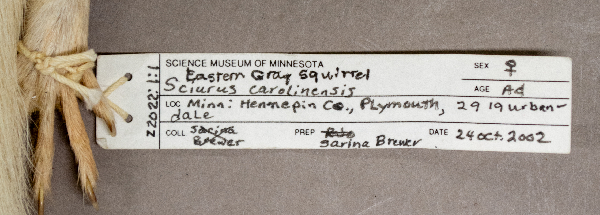 SCIENCE MUSEUM OF MINNESOTA
Eastern Gray Squirrel
Sciurus carolinensis
SEX ♀
AGE Ad
LOC Minn: Hennepin Co., Plymouth, 2919 urban-
dale
COLL Sarina Brewer
PREP Sarina Brewer
DATE 24 oct. 2002
Z2022:1:1